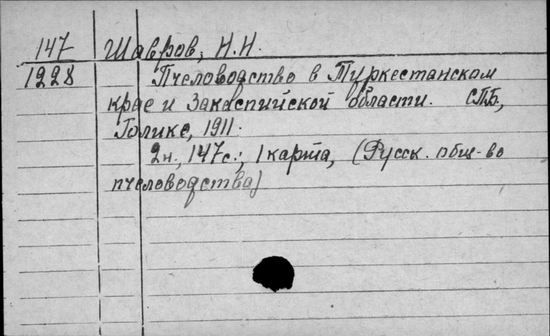 147 Шавров, Н.Н.
1228 Пчеловодство в Туркестанском
крае и Закаспийской области. СПБ,
Голике, 1911.
2н., 147с.; 1 карта, (Русск. общ-во
пчеловодства)